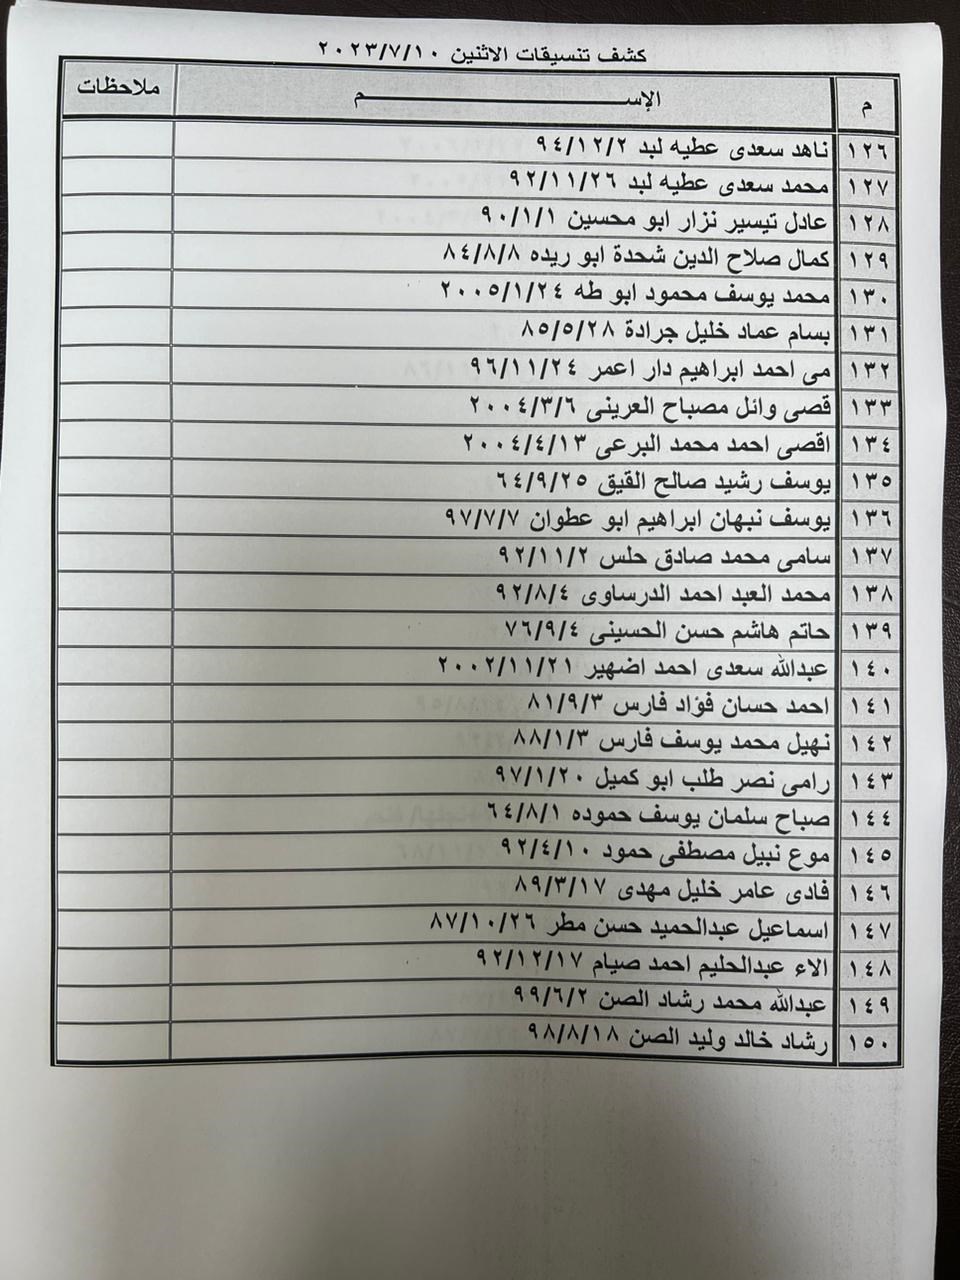 كشف تنسيقات الاثنين ٢٠٢٣/٧/١٠
م الإســـــــــم ملاحظات
١٢٦ ناهد سعدى عطيه لبد ٩٤/١٢/٢
١٢٧ محمد سعدى عطيه لبد ٩٢/١١/٢٦
١٢٨ عادل تيسير نزار ابو محسين ٩٠/١/١
١٢٩ كمال صلاح الدين شحدة ابو ريده ٨٤/٨/٨
١٣٠ محمد يوسف محمود ابو طه ٢٠٠٥/١/٢٤
١٣١ بسام عماد خليل جرادة ٨٥/٥/٢٨
١٣٢ مى احمد ابراهيم دار اعمر ٩٦/١١/٢٤
١٣٣ قصى وائل مصباح العرينى ٢٠٠٤/٣/٦
١٣٤ اقصى احمد محمد البرعى ٢٠٠٤/٤/١٣
١٣٥ يوسف رشيد صالح القيق ٦٤/٩/٢٥
١٣٦ يوسف نبهان ابراهيم ابو عطوان ٩٧/٧/٧
١٣٧ سامى محمد صادق حلس ٩٢/١١/٢
١٣٨ محمد العبد احمد الدرساوى ٩٢/٨/٤
١٣٩ حاتم هاشم حسن الحسينى ٧٦/٩/٤
١٤٠ عبدالله سعدى احمد اضهير ٢٠٠٢/١١/٢١
١٤١ احمد حسان فؤاد فارس ٨١/٩/٣
١٤٢ نهيل محمد يوسف فارس ٨٨/١/٣
١٤٣ رامى نصر طلب ابو كميل ٩٧/١/٢٠
١٤٤ صباح سلمان يوسف حموده ٦٤/٨/١
١٤٥ موع نبيل مصطفى حمود ٩٢/٤/١٠
١٤٦ فادى عامر خليل مهدى ٨٩/٣/١٧
١٤٧ اسماعيل عبدالحميد حسن مطر ٨٧/١٠/٢٦
١٤٨ الاء عبدالحليم احمد صيام ٩٢/١٢/١٧
١٤٩ عبدالله محمد رشاد الصن ٩٩/٦/٢
١٥٠ رشاد خالد وليد الصن ٩٨/٨/١٨